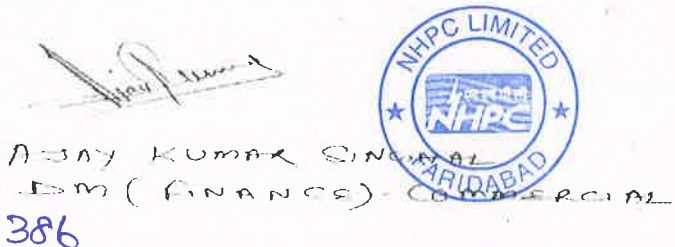 Ajay Kumar
NHPC LIMITED
एनएचपीसी
NHPC
FARIDABAD
AJAY KUMAR SINGHAL
DM (FINANCE) COMMERCIAL
386